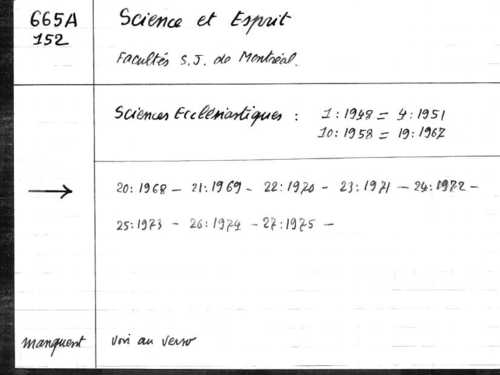 665A
152
Science et Esprit
Facultés S.J. de Montréal.
Sciences Ecclésiastiques : 1:1948 = 4:1951
10:1958 = 19:1967
20:1968 - 21:1969 - 22:1970 - 23:1971 - 24:1972 -
25:1973 - 26:1974 - 27:1975 -
manquent
voir au verso